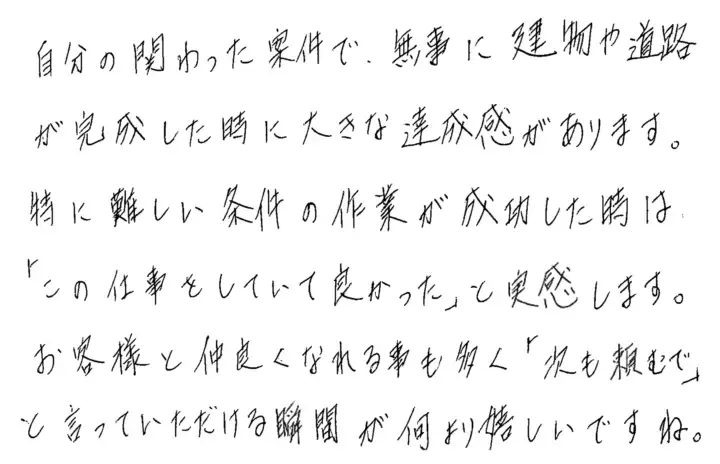 自分の関わった案件で、無事に建物や道路
が完成した時に大きな達成感があります。
特に難しい条件の作業が成功した時は、
「この仕事をしていて良かった」と実感します。
お客様と仲良くなれる事も多く「次も頼むで」
と言っていただける瞬間が何より嬉しいですね。